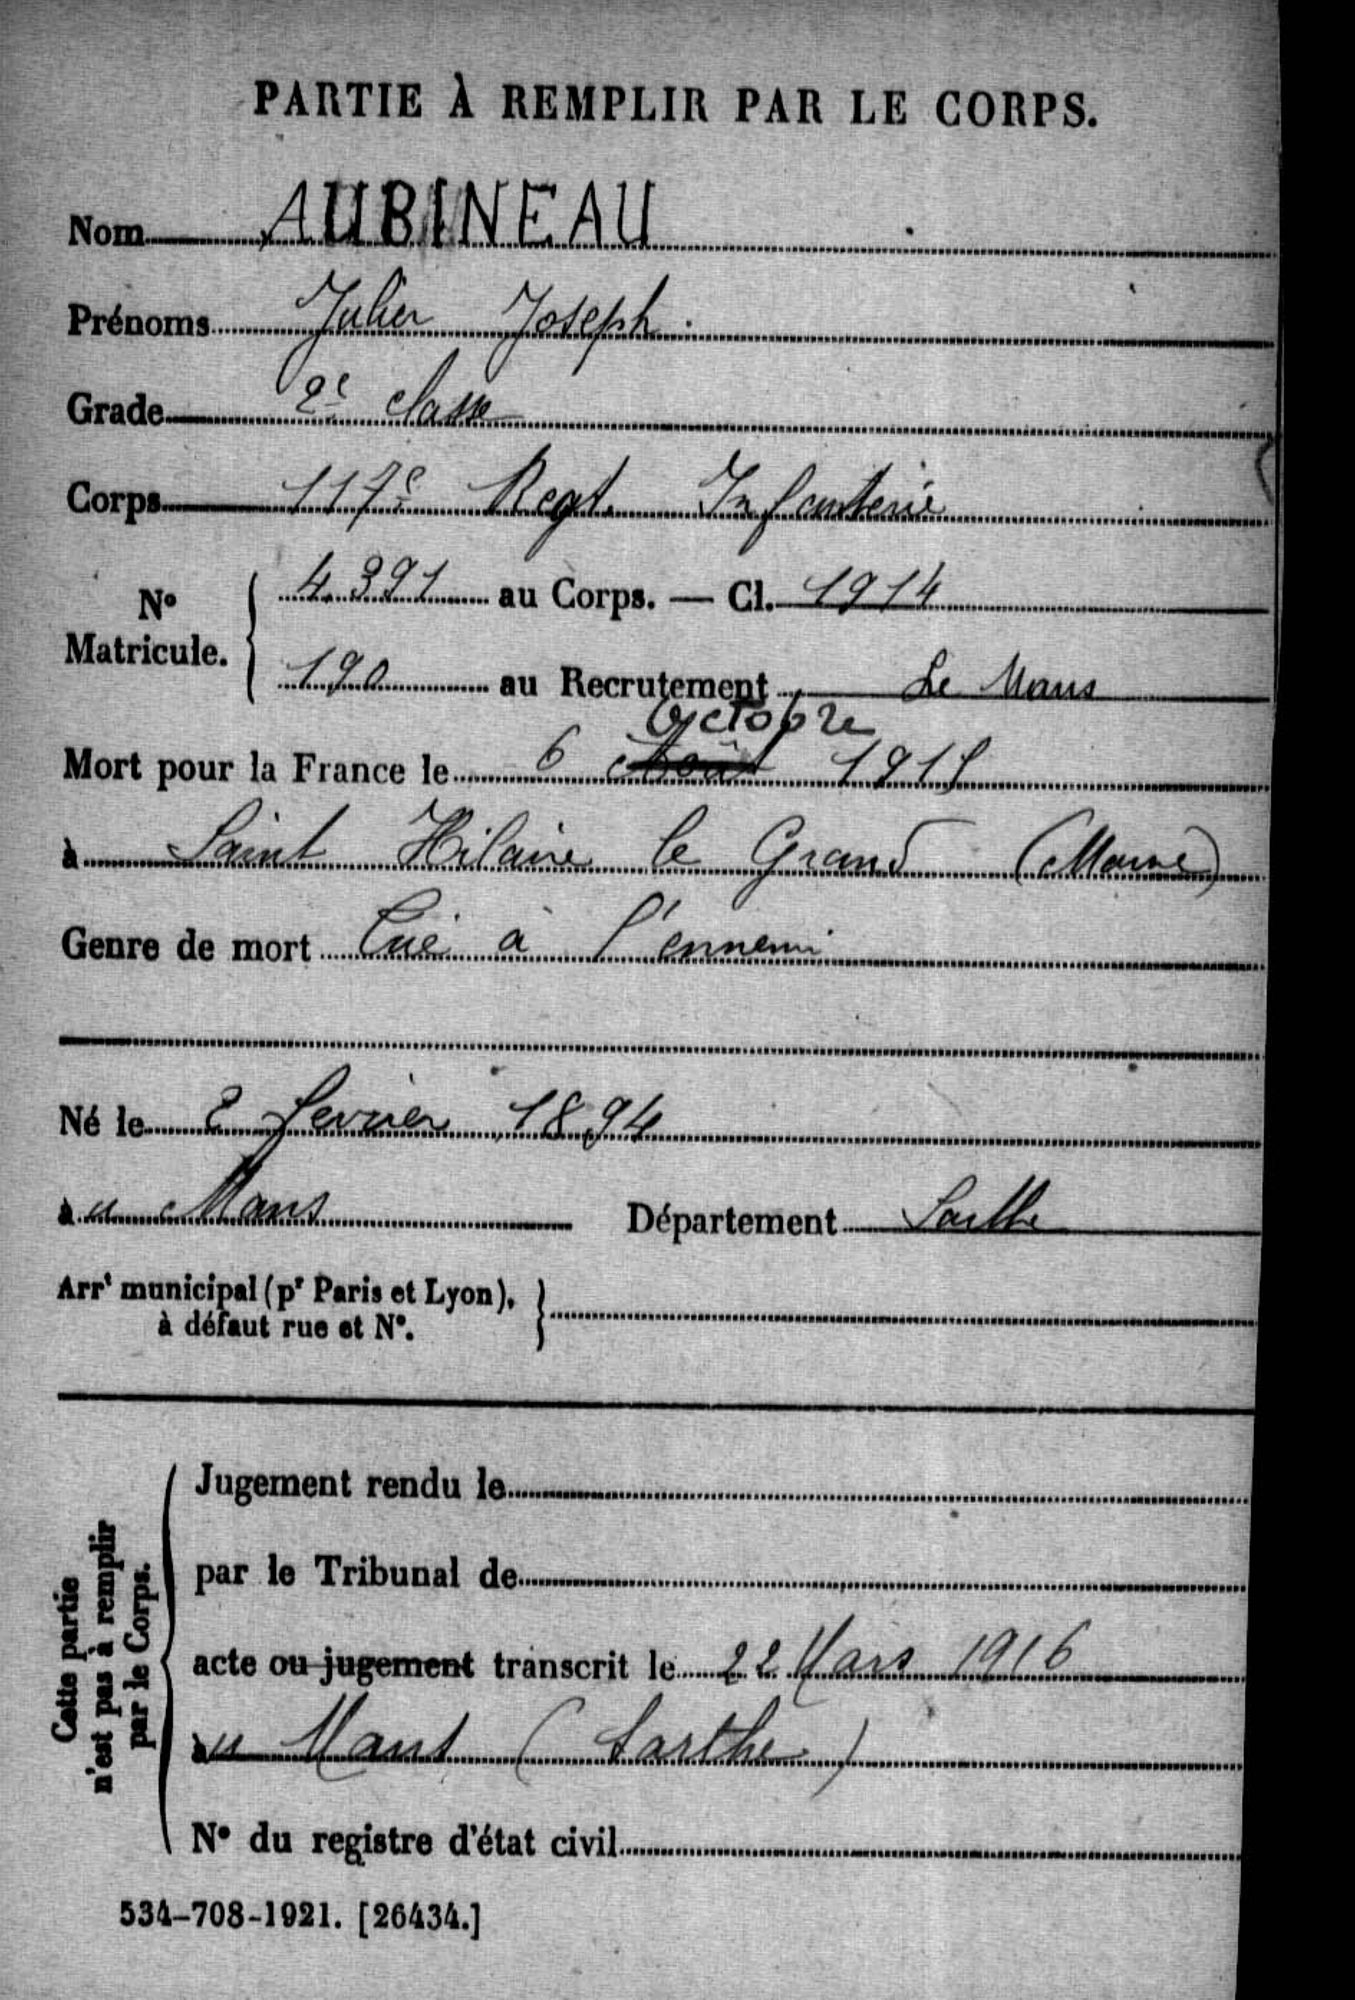 PARTIE À REMPLIR PAR LE CORPS.
Nom AUBINEAU
Prénoms Julien Joseph
Grade 2e classe
Corps 117e Regt. Infanterie
No Matricule. { 4391 au Corps. — Cl. 1914
190 au Recrutement Le Mans
Octobre
Mort pour la France le 6 Août 1915
à Saint Hilaire le Grand (Marne)
Genre de mort Tué à l'ennemi
Né le 2 fevrier 1894
au Mans Département Sarthe
Arrt municipal (pr Paris et Lyon), }
à défaut rue et No.
Cette partie
n'est pas à remplir
par le Corps.
Jugement rendu le
par le Tribunal de
acte ou jugement transcrit le 22 Mars 1916
au Mans (Sarthe)
No du registre d'état civil
534-708-1921. [26434.]